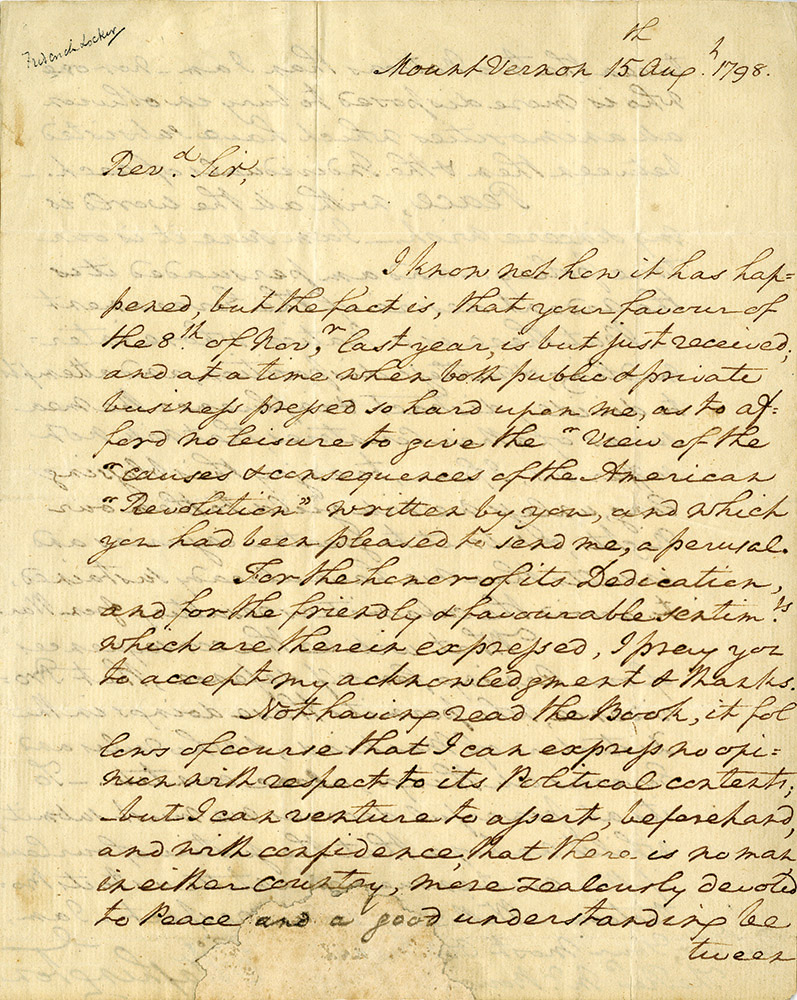 Frederick Locker
Mount Vernon 15th Augt 1798.
Revd Sir,
I know not how it has hap=
pened, but the fact is, that your favour of
the 8th of Novr, last year, is but just received;
and at a time when both public & private
business pressed so hard upon me, as to af=
ford no leisure to give the "View of the
"causes & consequences of the American
"Revolution" written by you, and which
you had been pleased to send me, a perusal.
For the honor of its Dedication,
and for the friendly & favourable sentimts
which are therein expressed, I pray you
to accept my acknowledgment & thanks.
Not having read the Book, it fol
lows of course that I can express no opi=
nion with respect to its Political contents;
but I can venture to assert, beforehand,
and with confidence, that there is no man
in either country, more zealously devoted
to Peace and a good understanding be
tween